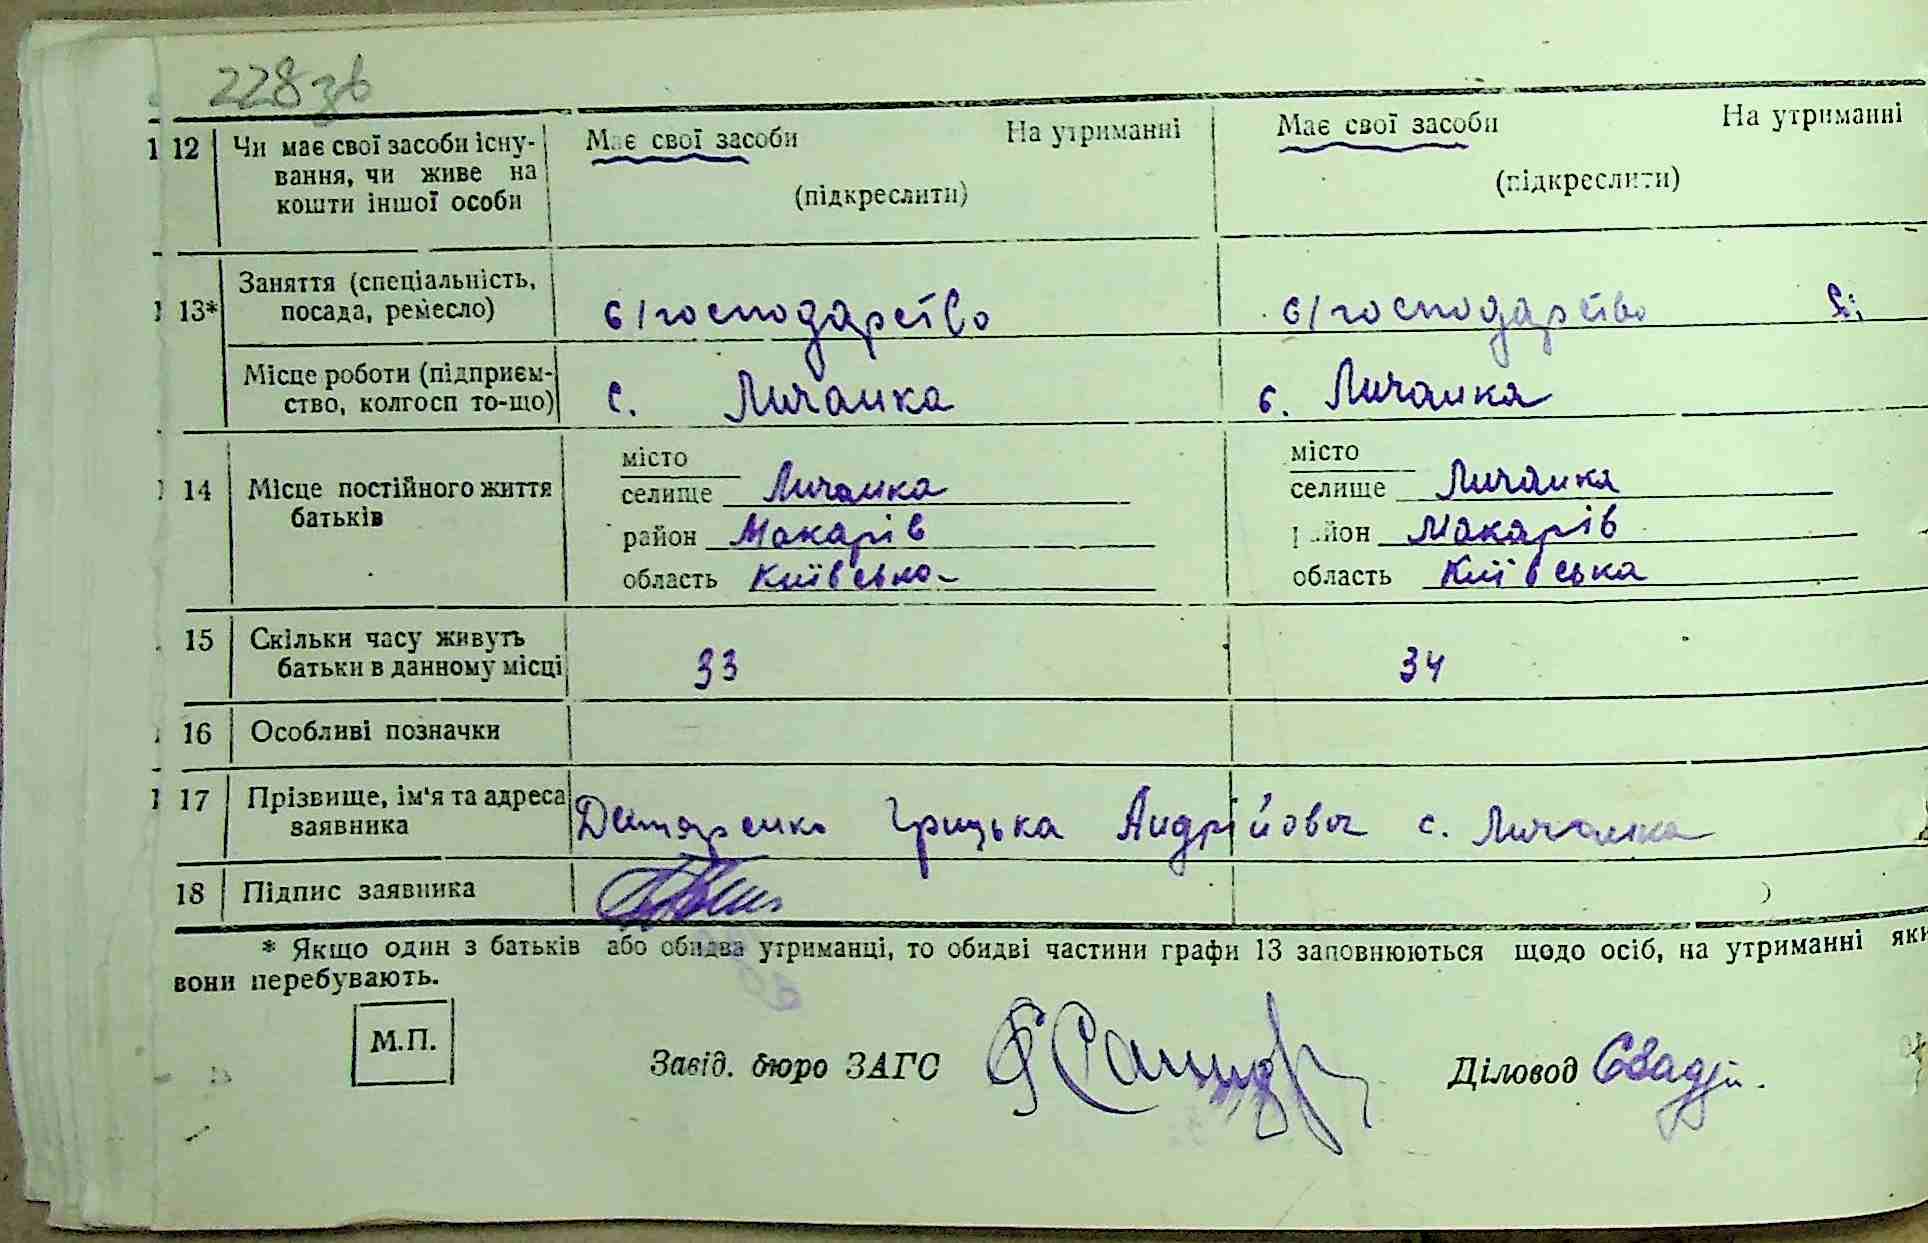 228 зв
12 Чи має свої засоби існу- Має свої засоби На утриманні Має свої засоби На утриманні
вання, чи живе на (підкреслити) (підкреслити)
кошти іншої особи
13* Заняття (спеціальність,
посада, ремесло) с/господарство с/господарство
Місце роботи (підприєм-
ство, колгосп то-що) с. Личанка с. Личанка
місто місто
14 Місце постійного життя селище Личанка селище Личанка
батьків
район Макарів район Макарів
область Київська область Київська
15 Скільки часу живуть
батьки в данному місці 33 34
16 Особливі позначки
17 Прізвище, ім'я та адреса
заявника Грицька Андрійович с. Личанка
18 Підпис заявника
* Якщо один з батьків або обидва утриманці, то обидві частини графи 13 заповнюються щодо осіб, на утриманні яки
вони перебувають.
М.П.
Завід. бюро ЗАГС Діловод